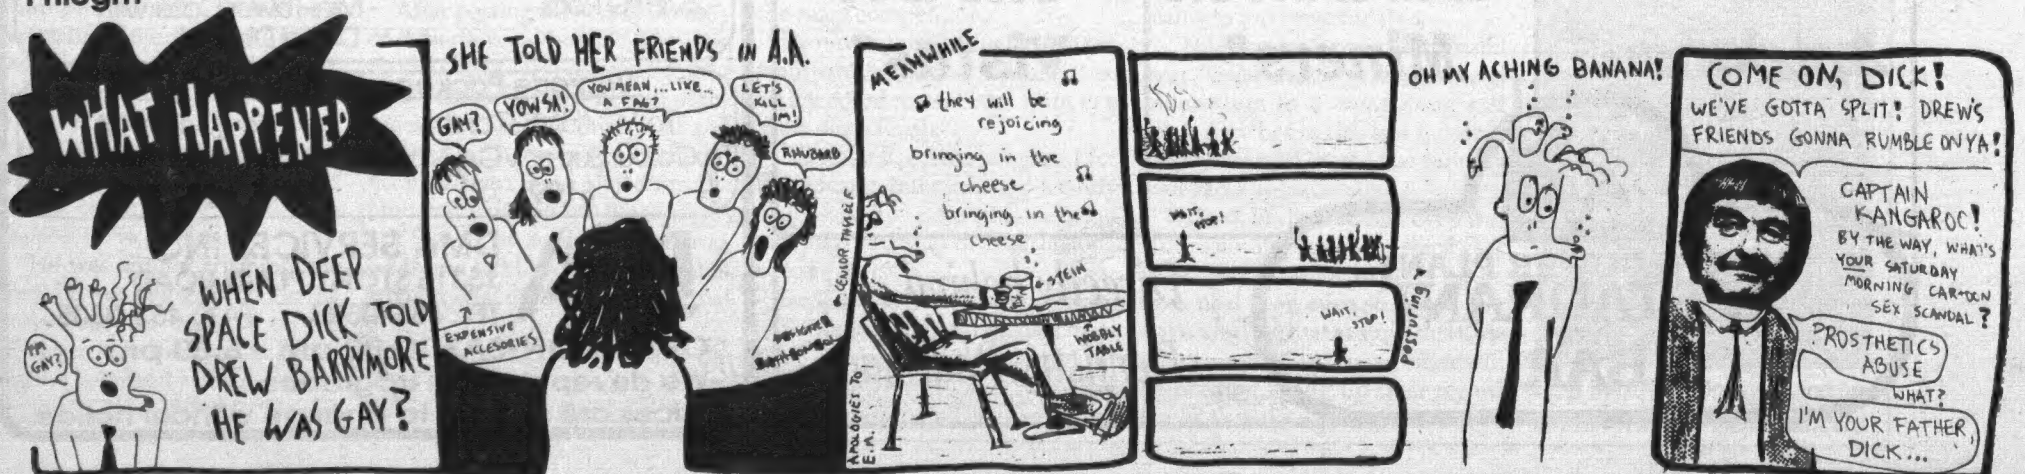 WHAT HAPPENED
WHEN DEEP
SPACE DICK TOLD
DREW BARRYMORE
HE WAS GAY?
I'M
GAY?
SHE TOLD HER FRIENDS IN A.A.
GAY?
YOWSA!
YOU MEAN... LIVE...
A FAG?
LET'S
KILL
'IM!
RHUBARB
EXPENSIVE
ACCESORIES
CENSOR THYSELF
MEANWHILE
they will be
rejoicing
bringing in the
cheese
bringing in the
cheese
STEIN
WOBBLY
TABLE
APOLOGIES TO
E.M.
WAIT,
STOP!
WAIT,
STOP!
posturing
OH MY ACHING BANANA!
COME ON, DICK!
WE'VE GOTTA SPLIT! DREW'S
FRIENDS GONNA RUMBLE ON YA!
CAPTAIN
KANGAROO!
BY THE WAY, WHAT'S
YOUR SATURDAY
MORNING CARTOON
SEX SCANDAL?
PROSTHETICS
ABUSE
WHAT?
I'M YOUR FATHER,
DICK...